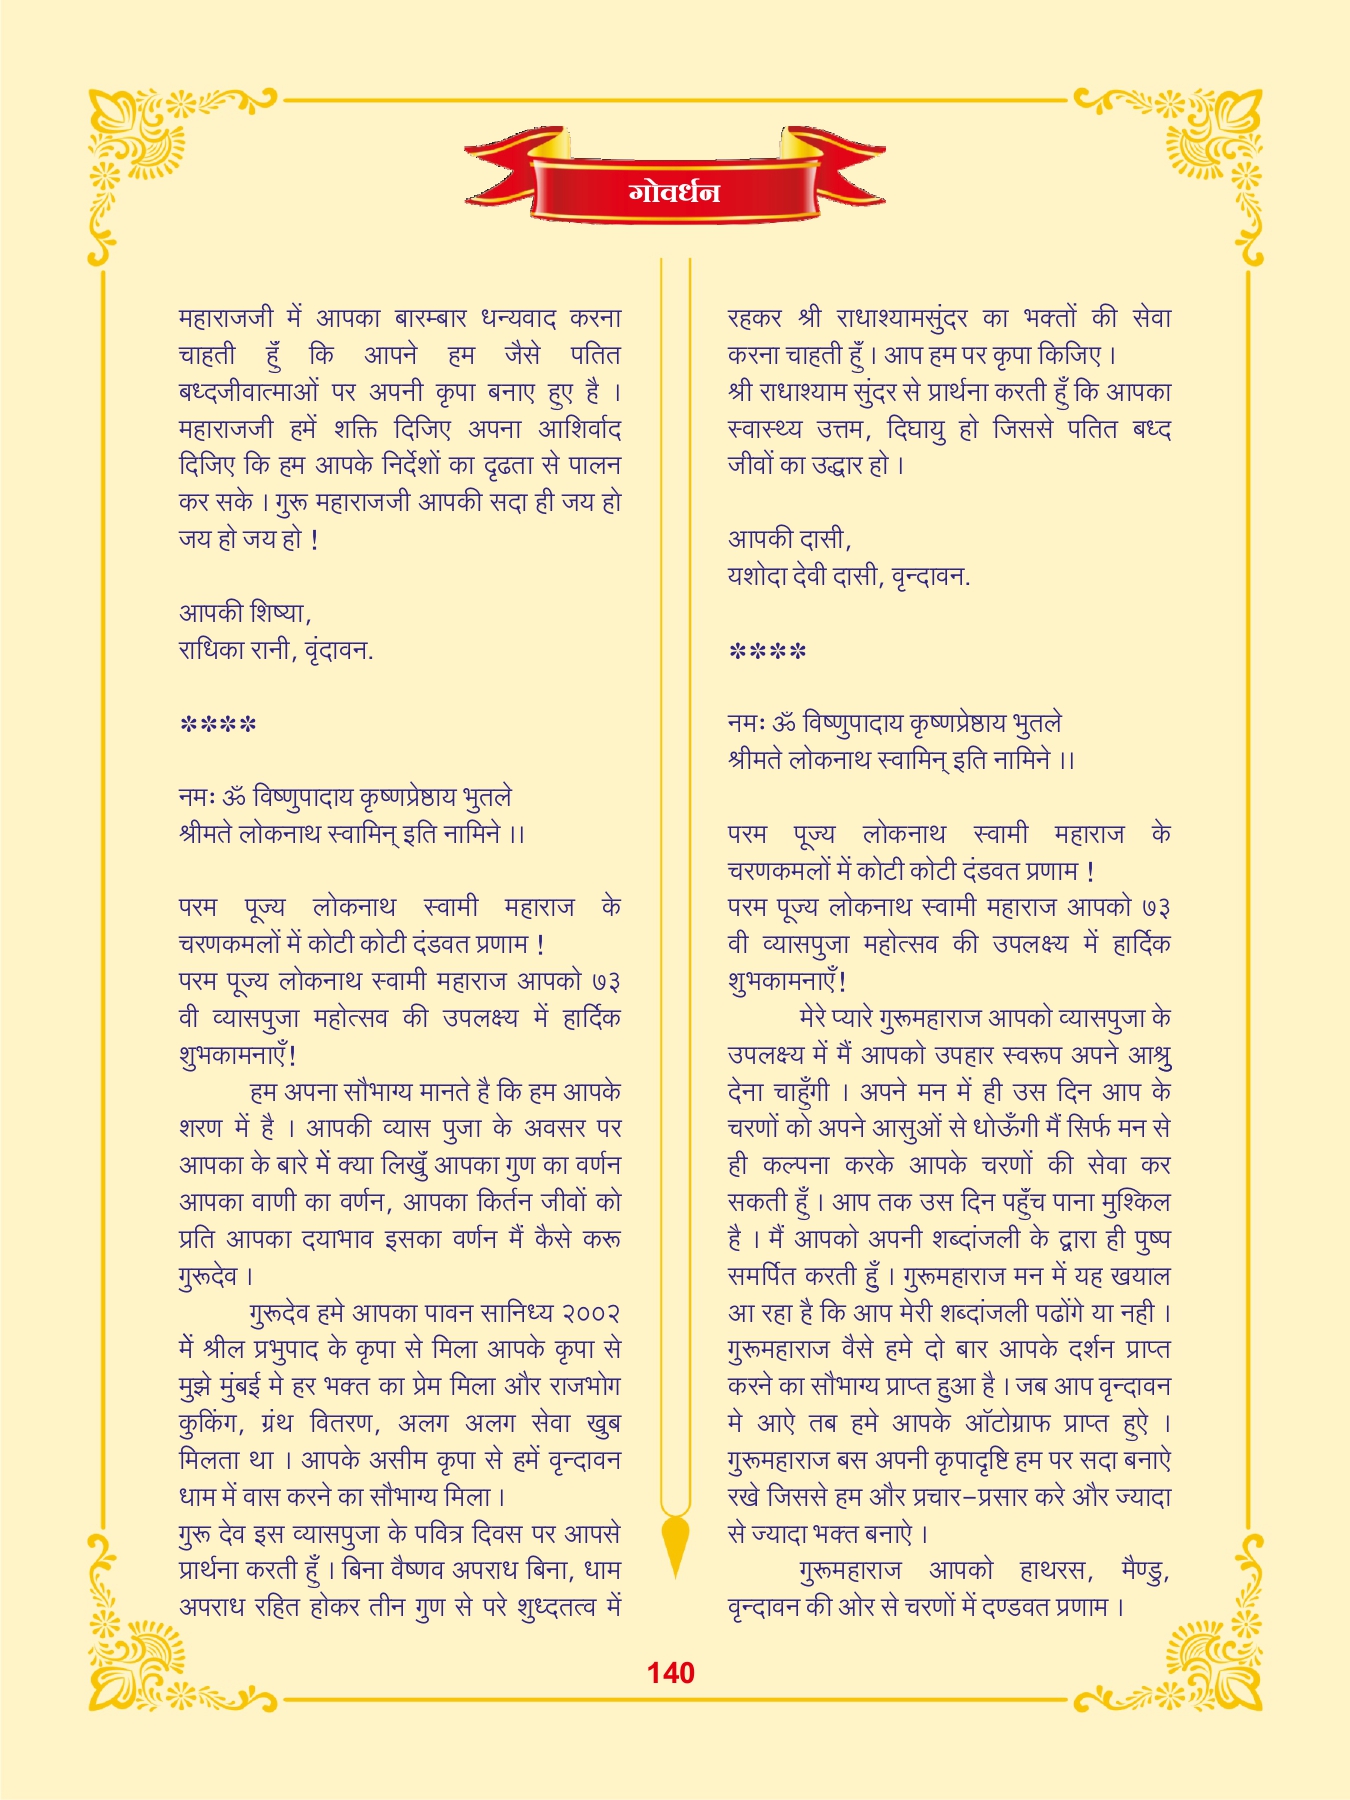 गोवर्धन
महाराजजी में आपका बारम्बार धन्यवाद करना
चाहती हुँ कि आपने हम जैसे पतित
बध्दजीवात्माओं पर अपनी कृपा बनाए हुए है ।
महाराजजी हमें शक्ति दिजिए अपना आशिर्वाद
दिजिए कि हम आपके निर्देशों का दृढता से पालन
कर सके । गुरू महाराजजी आपकी सदा ही जय हो
जय हो जय हो !
आपकी शिष्या,
राधिका रानी, वृंदावन.
****
नमः ॐ विष्णुपादाय कृष्णप्रेष्ठाय भुतले
श्रीमते लोकनाथ स्वामिन् इति नामिने ।।
परम पूज्य लोकनाथ स्वामी महाराज के
चरणकमलों में कोटी कोटी दंडवत प्रणाम !
परम पूज्य लोकनाथ स्वामी महाराज आपको ७३
वी व्यासपुजा महोत्सव की उपलक्ष्य में हार्दिक
शुभकामनाएँ!
हम अपना सौभाग्य मानते है कि हम आपके
शरण में है । आपकी व्यास पुजा के अवसर पर
आपका के बारे में क्या लिखुँ आपका गुण का वर्णन
आपका वाणी का वर्णन, आपका किर्तन जीवों को
प्रति आपका दयाभाव इसका वर्णन मैं कैसे करू
गुरूदेव ।
गुरूदेव हमे आपका पावन सानिध्य २००२
में श्रील प्रभुपाद के कृपा से मिला आपके कृपा से
मुझे मुंबई मे हर भक्त का प्रेम मिला और राजभोग
कुकिंग, ग्रंथ वितरण, अलग अलग सेवा खुब
मिलता था । आपके असीम कृपा से हमें वृन्दावन
धाम में वास करने का सौभाग्य मिला ।
गुरू देव इस व्यासपुजा के पवित्र दिवस पर आपसे
प्रार्थना करती हुँ । बिना वैष्णव अपराध बिना, धाम
अपराध रहित होकर तीन गुण से परे शुध्दतत्व में
रहकर श्री राधाश्यामसुंदर का भक्तों की सेवा
करना चाहती हुँ । आप हम पर कृपा किजिए ।
श्री राधाश्याम सुंदर से प्रार्थना करती हुँ कि आपका
स्वास्थ्य उत्तम, दिघायु हो जिससे पतित बध्द
जीवों का उद्धार हो ।
आपकी दासी,
यशोदा देवी दासी, वृन्दावन.
****
नमः ॐ विष्णुपादाय कृष्णप्रेष्ठाय भुतले
श्रीमते लोकनाथ स्वामिन् इति नामिने ।।
परम पूज्य लोकनाथ स्वामी महाराज के
चरणकमलों में कोटी कोटी दंडवत प्रणाम !
परम पूज्य लोकनाथ स्वामी महाराज आपको ७३
वी व्यासपुजा महोत्सव की उपलक्ष्य में हार्दिक
शुभकामनाएँ!
मेरे प्यारे गुरूमहाराज आपको व्यासपुजा के
उपलक्ष्य में मैं आपको उपहार स्वरूप अपने आश्रु
देना चाहुँगी । अपने मन में ही उस दिन आप के
चरणों को अपने आसुओं से धोऊँगी मैं सिर्फ मन से
ही कल्पना करके आपके चरणों की सेवा कर
सकती हुँ । आप तक उस दिन पहुँच पाना मुश्किल
है । मैं आपको अपनी शब्दांजली के द्वारा ही पुष्प
समर्पित करती हुँ । गुरूमहाराज मन में यह खयाल
आ रहा है कि आप मेरी शब्दांजली पढोंगे या नही ।
गुरूमहाराज वैसे हमे दो बार आपके दर्शन प्राप्त
करने का सौभाग्य प्राप्त हुआ है । जब आप वृन्दावन
मे आऐ तब हमे आपके ऑटोग्राफ प्राप्त हुऐ ।
गुरूमहाराज बस अपनी कृपादृष्टि हम पर सदा बनाऐ
रखे जिससे हम और प्रचार-प्रसार करे और ज्यादा
से ज्यादा भक्त बनाऐ ।
गुरूमहाराज आपको हाथरस, मैण्डु,
वृन्दावन की ओर से चरणों में दण्डवत प्रणाम ।
140